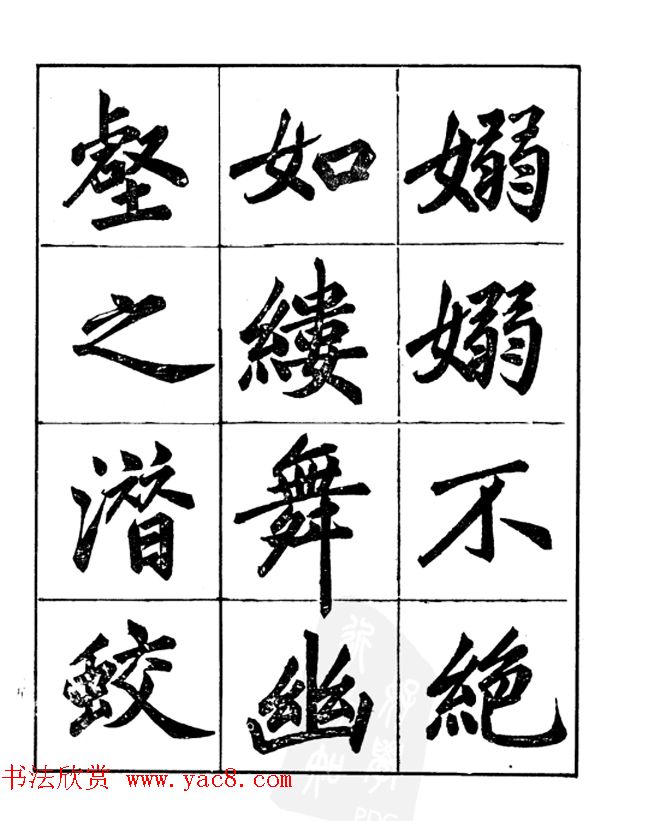 嫋嫋不絶
如縷舞幽
壑之潛蛟
书法欣赏 www.yac8.com